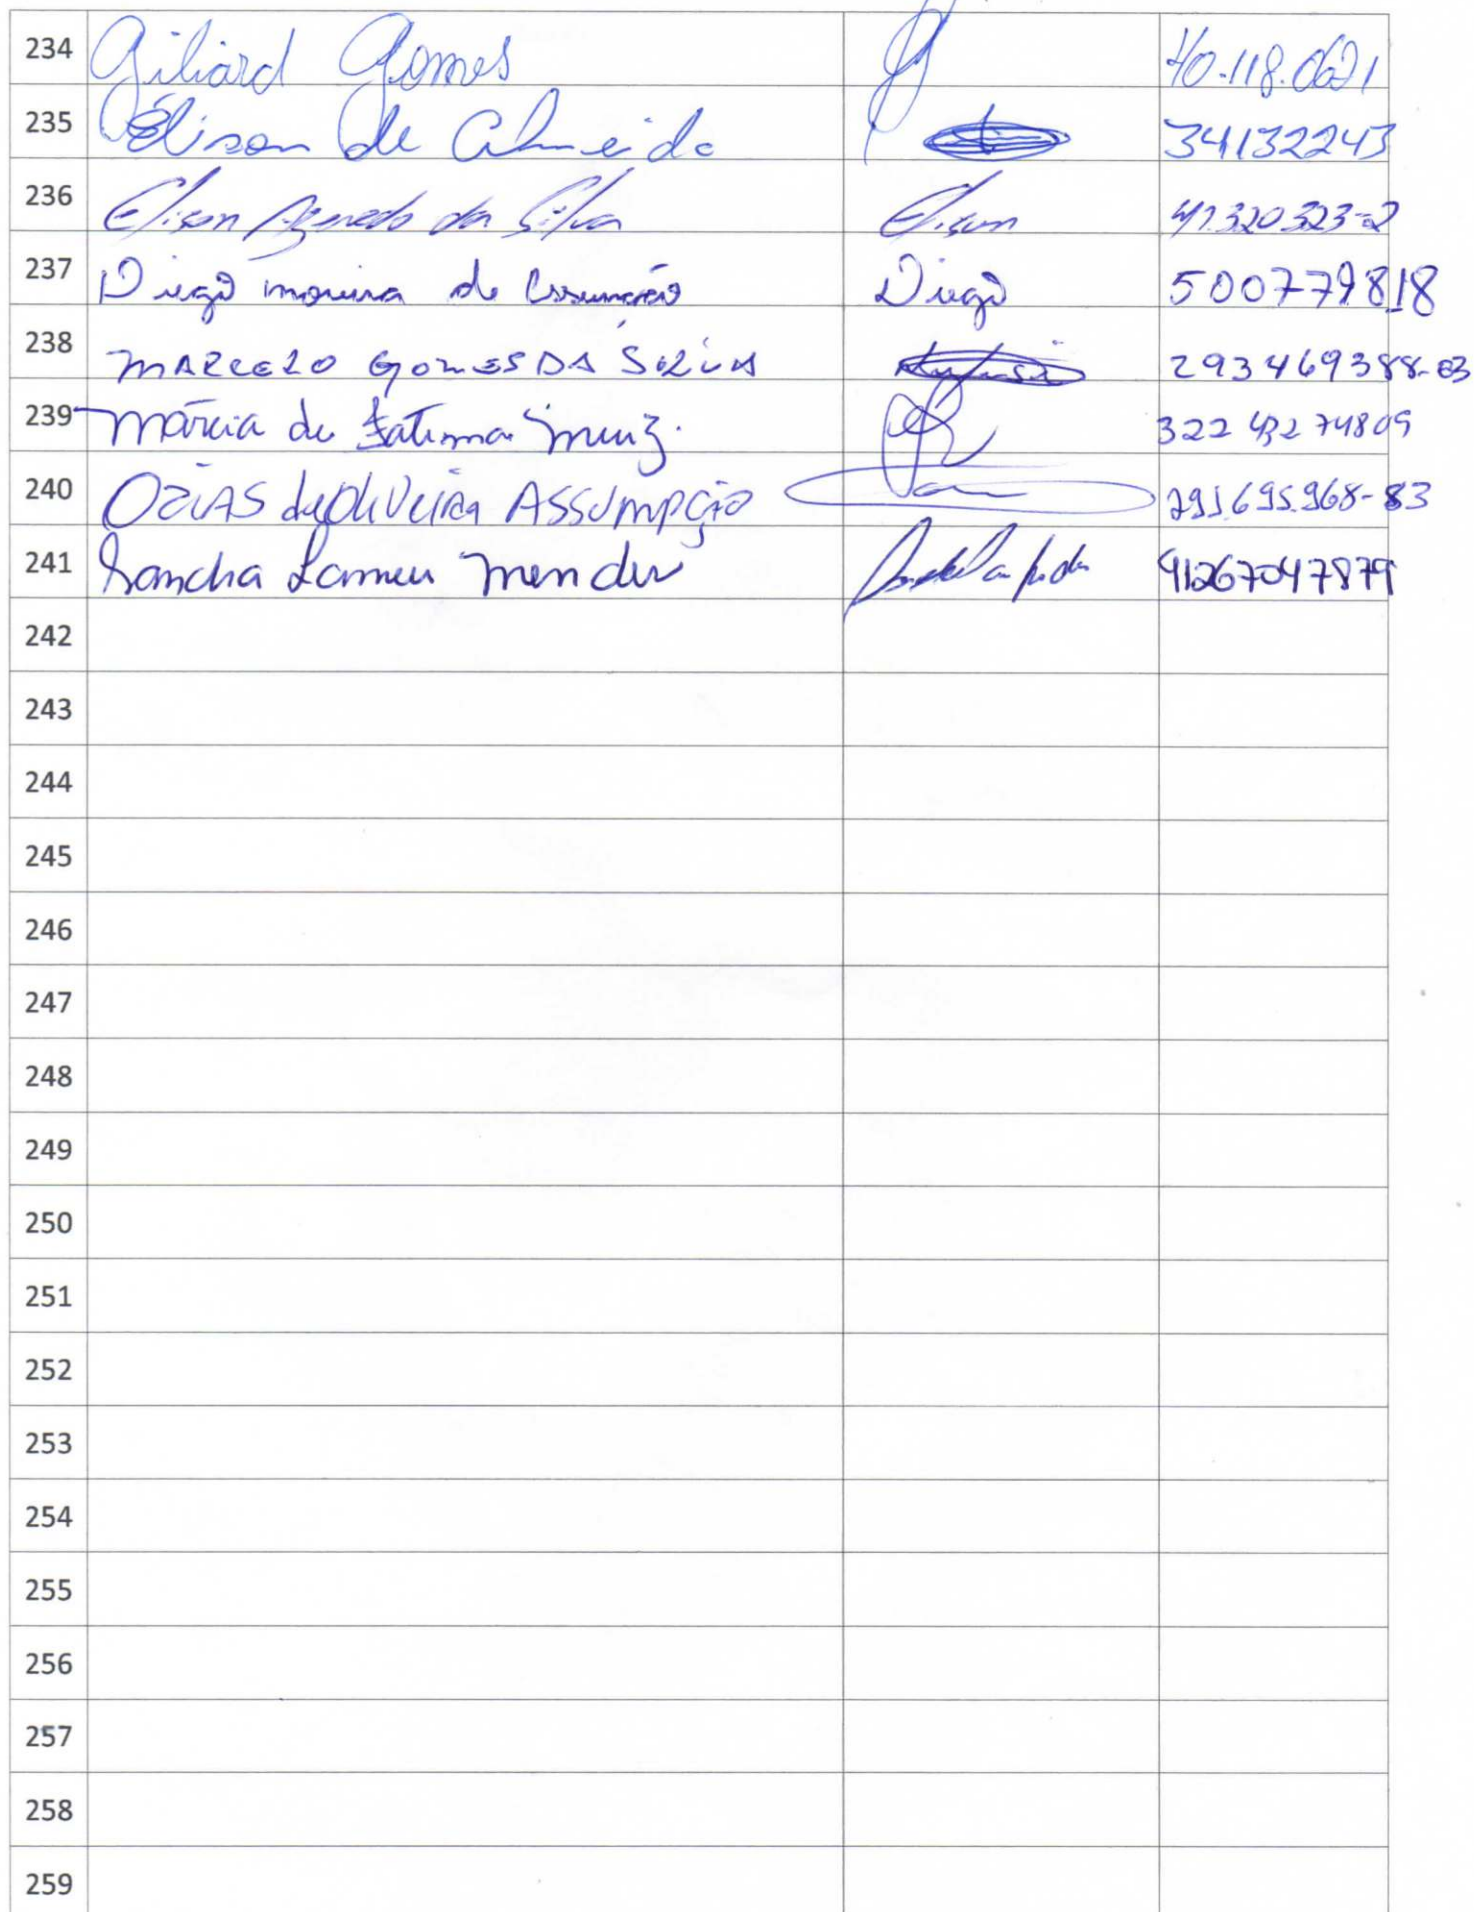 234 Giliard Gomes 40.118.0621
235 Élison de Almeida 34132243
236 Elison Azevedo da Silva Elison 41.320.323-2
237 Diego moreira de Assunção Diego 500779818
238 MARCELO GOMES DA SILVA 293469388-03
239 Márcia de Fatima Muniz. 322 432 74809
240 OZIAS de OliVeira ASSUMPÇão 291.695.968-83
241 Sancha Lameu Mendes 41267047879
242
243
244
245
246
247
248
249
250
251
252
253
254
255
256
257
258
259